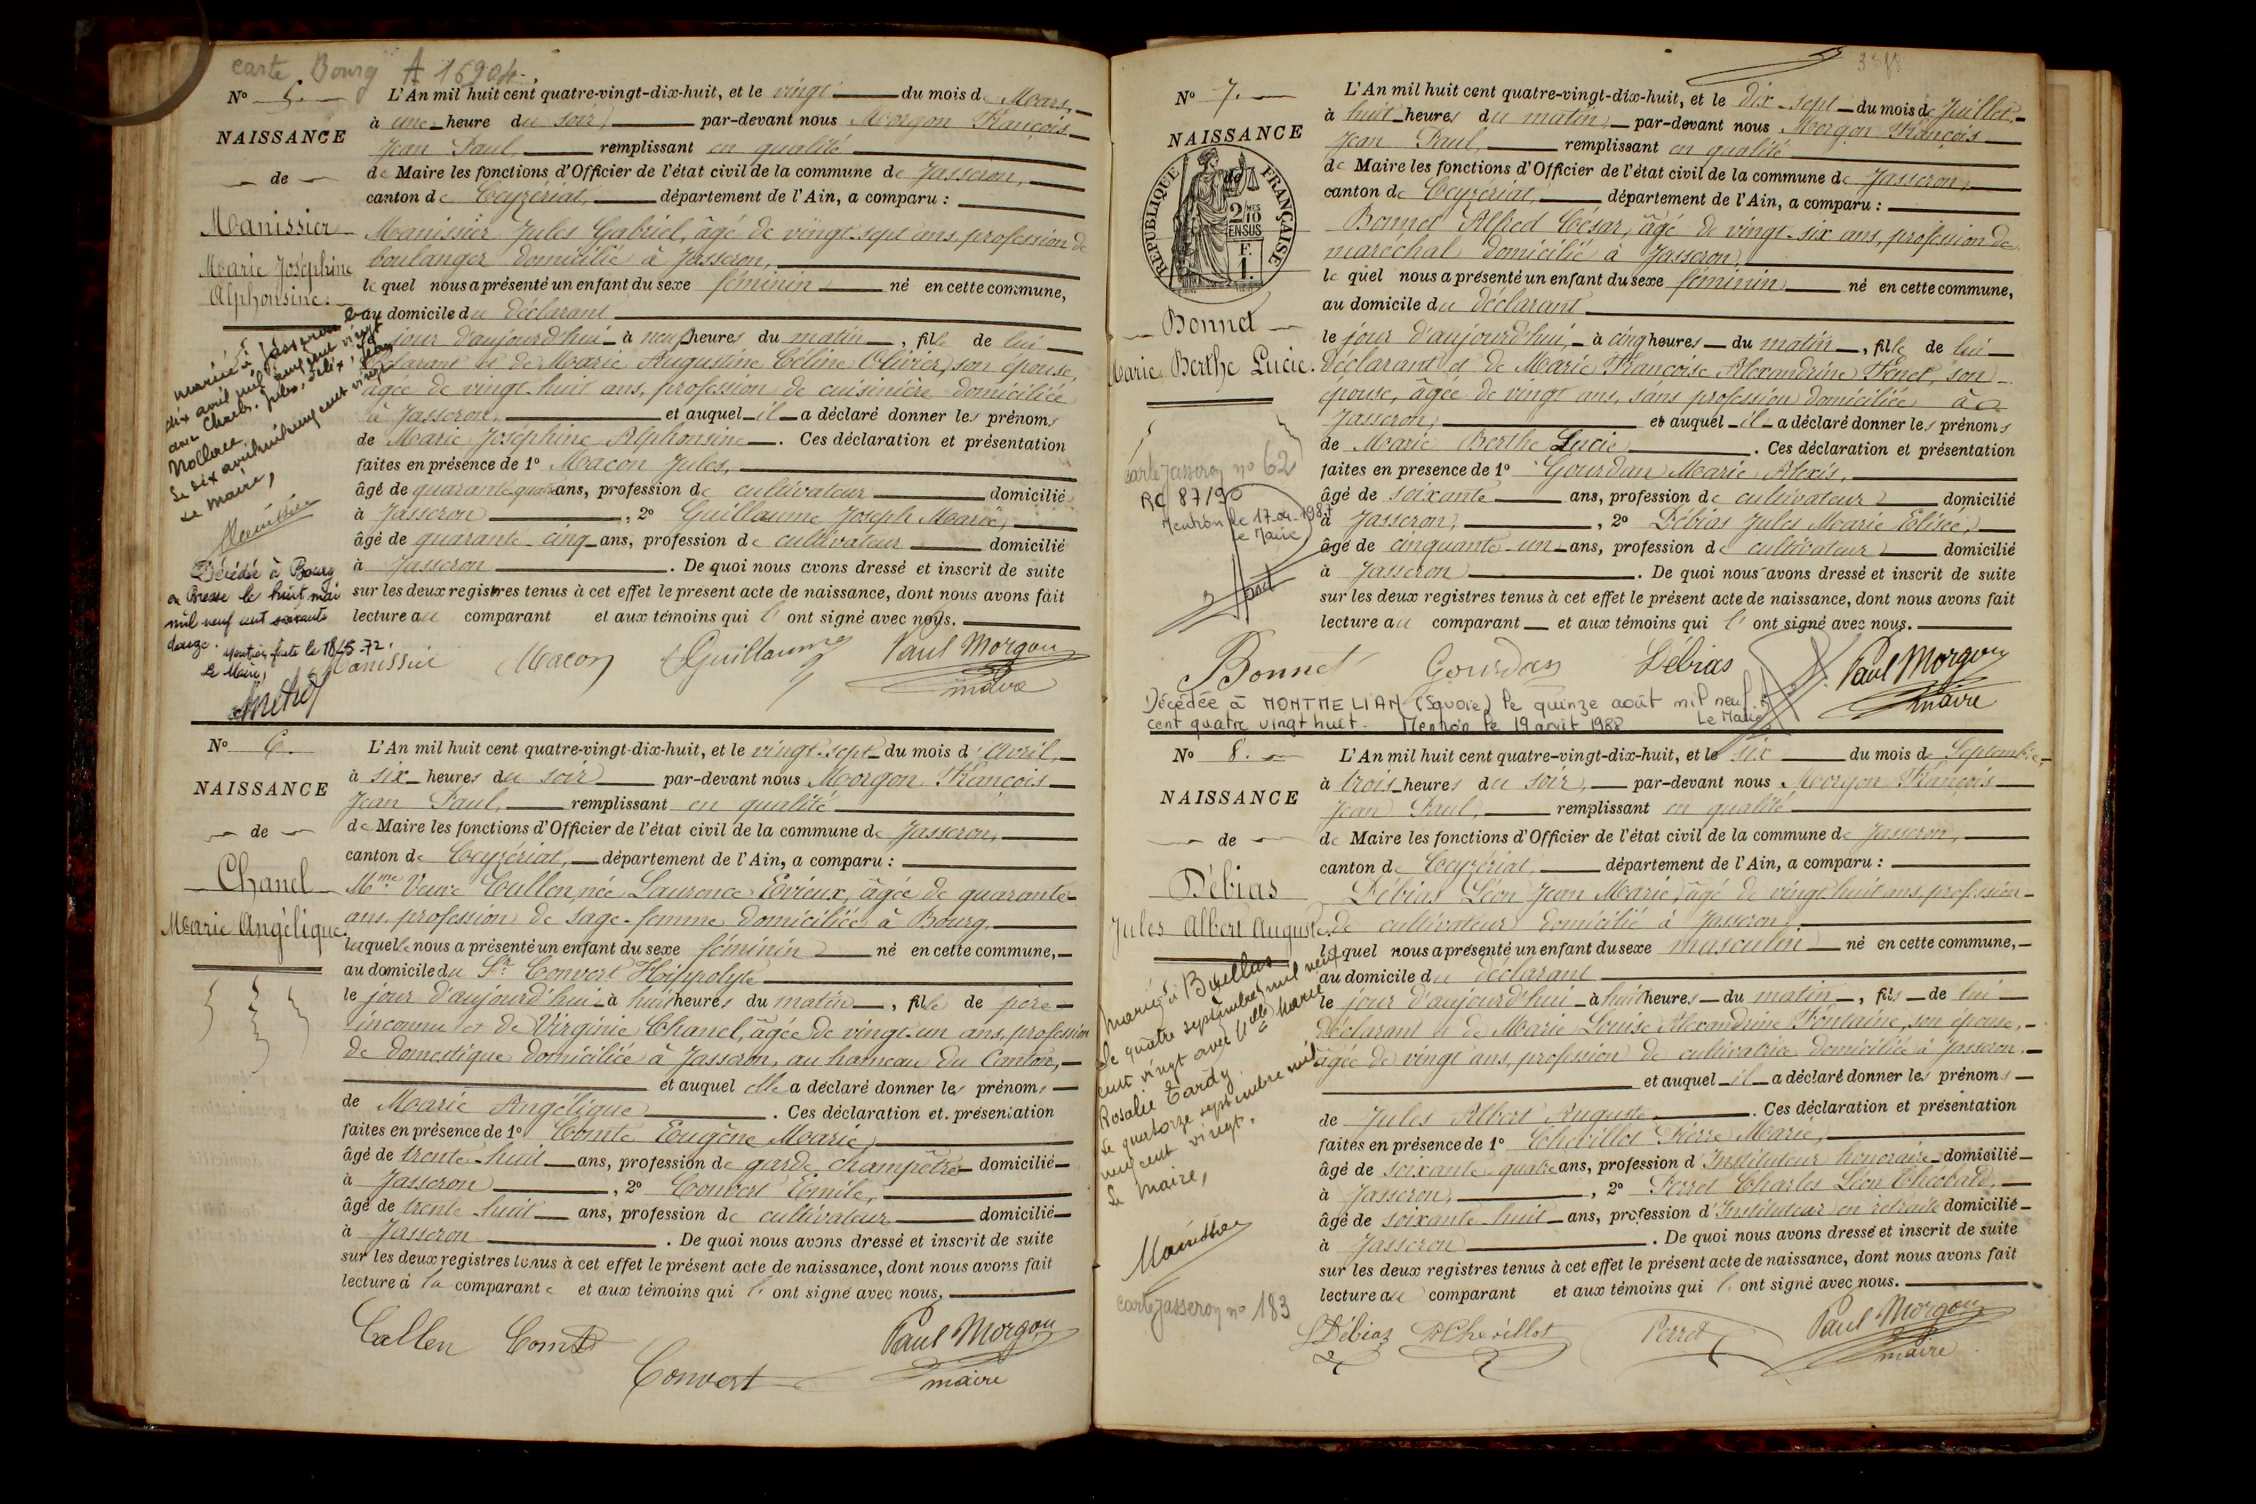 carte Bourg A 16904
N° 5.
NAISSANCE
de
Manissier
Marie Joséphine
Alphonsine.
L'An mil huit cent quatre-vingt-dix-huit, et le vingt du mois de Mars,
à une heure du soir, par-devant nous Morgon François
Jean Paul, remplissant en qualité
de Maire les fonctions d'Officier de l'état civil de la commune de Jasseron,
canton de Ceyzériat, département de l'Ain, a comparu :
Manissier Jules Gabriel, âgé de vingt-sept ans, profession de
boulanger domicilié à Jasseron,
le quel nous a présenté un enfant du sexe féminin né en cette commune,
au domicile du déclarant
le jour d'aujourd'hui à neuf heures du matin, fille de lui
déclarant et de Marie Augustine Céline Olivier, son épouse,
âgée de vingt-huit ans, profession de cuisinière domiciliée
à Jasseron, et auquel il a déclaré donner les prénoms
de Marie Joséphine Alphonsine. Ces déclaration et présentation
faites en présence de 1° Macon Jules,
âgé de quarante quatre ans, profession de cultivateur domicilié
à Jasseron, 2° Guillaume Joseph Marie,
âgé de quarante cinq ans, profession de cultivateur domicilié
à Jasseron. De quoi nous avons dressé et inscrit de suite
sur les deux registres tenus à cet effet le present acte de naissance, dont nous avons fait
lecture au comparant et aux témoins qui l'ont signé avec nous.
Mariée à Jasseron le
dix avril mil neuf cent vingt
avec Charles, Jules, Félix, Jean
Le dix avril mil neuf cent vingt
Le Maire,
Décédée à Bourg
en Bresse le huit mai
mil neuf cent soixante
douze. Mention faite le 18-5-72.
Le Maire,
Manissier Macon Guillaume Paul Morgon
maire
N° 6.
NAISSANCE
de
Chanel
Marie Angélique.
L'An mil huit cent quatre-vingt-dix-huit, et le vingt-sept du mois d'Avril,
à six heures du soir par-devant nous Morgon François
Jean Paul, remplissant en qualité
de Maire les fonctions d'Officier de l'état civil de la commune de Jasseron,
canton de Ceyzériat, département de l'Ain, a comparu :
Mme Veuve Cullen, née Laurence Evieux, âgée de quarante
ans, profession de sage-femme domiciliée à Bourg,
laquelle nous a présenté un enfant du sexe féminin né en cette commune,
au domicile du Sr Convert Hippolyte
le jour d'aujourd'hui à huit heures du matin, fille de père
inconnu et de Virginie Chanel, âgée de vingt-un ans, profession
de domestique domiciliée à Jasseron, au hameau du Canton,
et auquel elle a déclaré donner les prénoms
de Marie Angélique. Ces déclaration et présentation
faites en présence de 1° Comte Eugène Marie,
âgé de trente-huit ans, profession de garde champêtre domicilié
à Jasseron, 2° Convert Emile,
âgé de trente huit ans, profession de cultivateur domicilié
à Jasseron. De quoi nous avons dressé et inscrit de suite
sur les deux registres tenus à cet effet le présent acte de naissance, dont nous avons fait
lecture à la comparante et aux témoins qui l'ont signé avec nous.
Callen Comte Paul Morgon
Convert maire
N° 7.
NAISSANCE
de
RÉPUBLIQUE FRANÇAISE
2/10 MES
EN SUS
F.
1.
Bonnet
Marie Berthe Lucie.
L'An mil huit cent quatre-vingt-dix-huit, et le dix-sept du mois de Juillet,
à huit heures du matin, par-devant nous Morgon François
Jean Paul, remplissant en qualité
de Maire les fonctions d'Officier de l'état civil de la commune de Jasseron,
canton de Ceyzériat, département de l'Ain, a comparu :
Bonnet Alfred César, âgé de vingt-six ans, profession de
maréchal domicilié à Jasseron,
le quel nous a présenté un enfant du sexe féminin né en cette commune,
au domicile du déclarant
le jour d'aujourd'hui, à cinq heures du matin, fille de lui
déclarant et de Marie Françoise Alexandrine Venet, son
épouse, âgée de vingt ans, sans profession domiciliée à
Jasseron, et auquel il a déclaré donner les prénoms
de Marie Berthe Lucie. Ces déclaration et présentation
faites en presence de 1° Gourdan Marie Alexis,
âgé de soixante ans, profession de cultivateur domicilié
à Jasseron, 2° Débias Jules Marie Elisée,
âgé de cinquante-un ans, profession de cultivateur domicilié
à Jasseron. De quoi nous avons dressé et inscrit de suite
sur les deux registres tenus à cet effet le présent acte de naissance, dont nous avons fait
lecture au comparant et aux témoins qui l'ont signé avec nous.
carte Jasseron n° 62
RC 87/90
Mention le 17-04-1987
Le Maire
Bonnet Gourdan Débias Paul Morgon
maire
Décédée à MONTMELIAN (Savoie) le quinze août mil neuf
cent quatre vingt huit. Mention le 19 août 1988 Le Maire
N° 8.
NAISSANCE
de
Débias
Jules Albert Auguste.
L'An mil huit cent quatre-vingt-dix-huit, et le six du mois de Septembre,
à trois heures du soir, par-devant nous Morgon François
Jean Paul, remplissant en qualité
de Maire les fonctions d'Officier de l'état civil de la commune de Jasseron,
canton de Ceyzériat, département de l'Ain, a comparu :
Débias Léon Jean Marie, âgé de vingt huit ans, profession
de cultivateur domicilié à Jasseron,
le quel nous a présenté un enfant du sexe masculin né en cette commune,
au domicile du déclarant
le jour d'aujourd'hui à huit heures du matin, fils de lui
déclarant et de Marie Louise Alexandrine Fontaine, son épouse,
âgée de vingt ans, profession de cultivatrice domiciliée à Jasseron.
et auquel il a déclaré donner les prénoms
de Jules Albert Auguste. Ces déclaration et présentation
faites en présence de 1° Chevillot Pierre Marie,
âgé de soixante quatre ans, profession d'Instituteur honoraire domicilié
à Jasseron, 2° Perret Charles Léon Théobald,
âgé de soixante-huit ans, profession d'Instituteur en retraite domicilié
à Jasseron. De quoi nous avons dressé et inscrit de suite
sur les deux registres tenus à cet effet le présent acte de naissance, dont nous avons fait
lecture au comparant et aux témoins qui l'ont signé avec nous.
Marié à Buellas
le quatre septembre mil neuf
cent vingt avec Melle Marie
Rosalie Tardy.
Le quatorze septembre mil
neuf cent vingt.
Le Maire,
carte Jasseron n° 183
LDébias PChevillot Perret Paul Morgon
maire